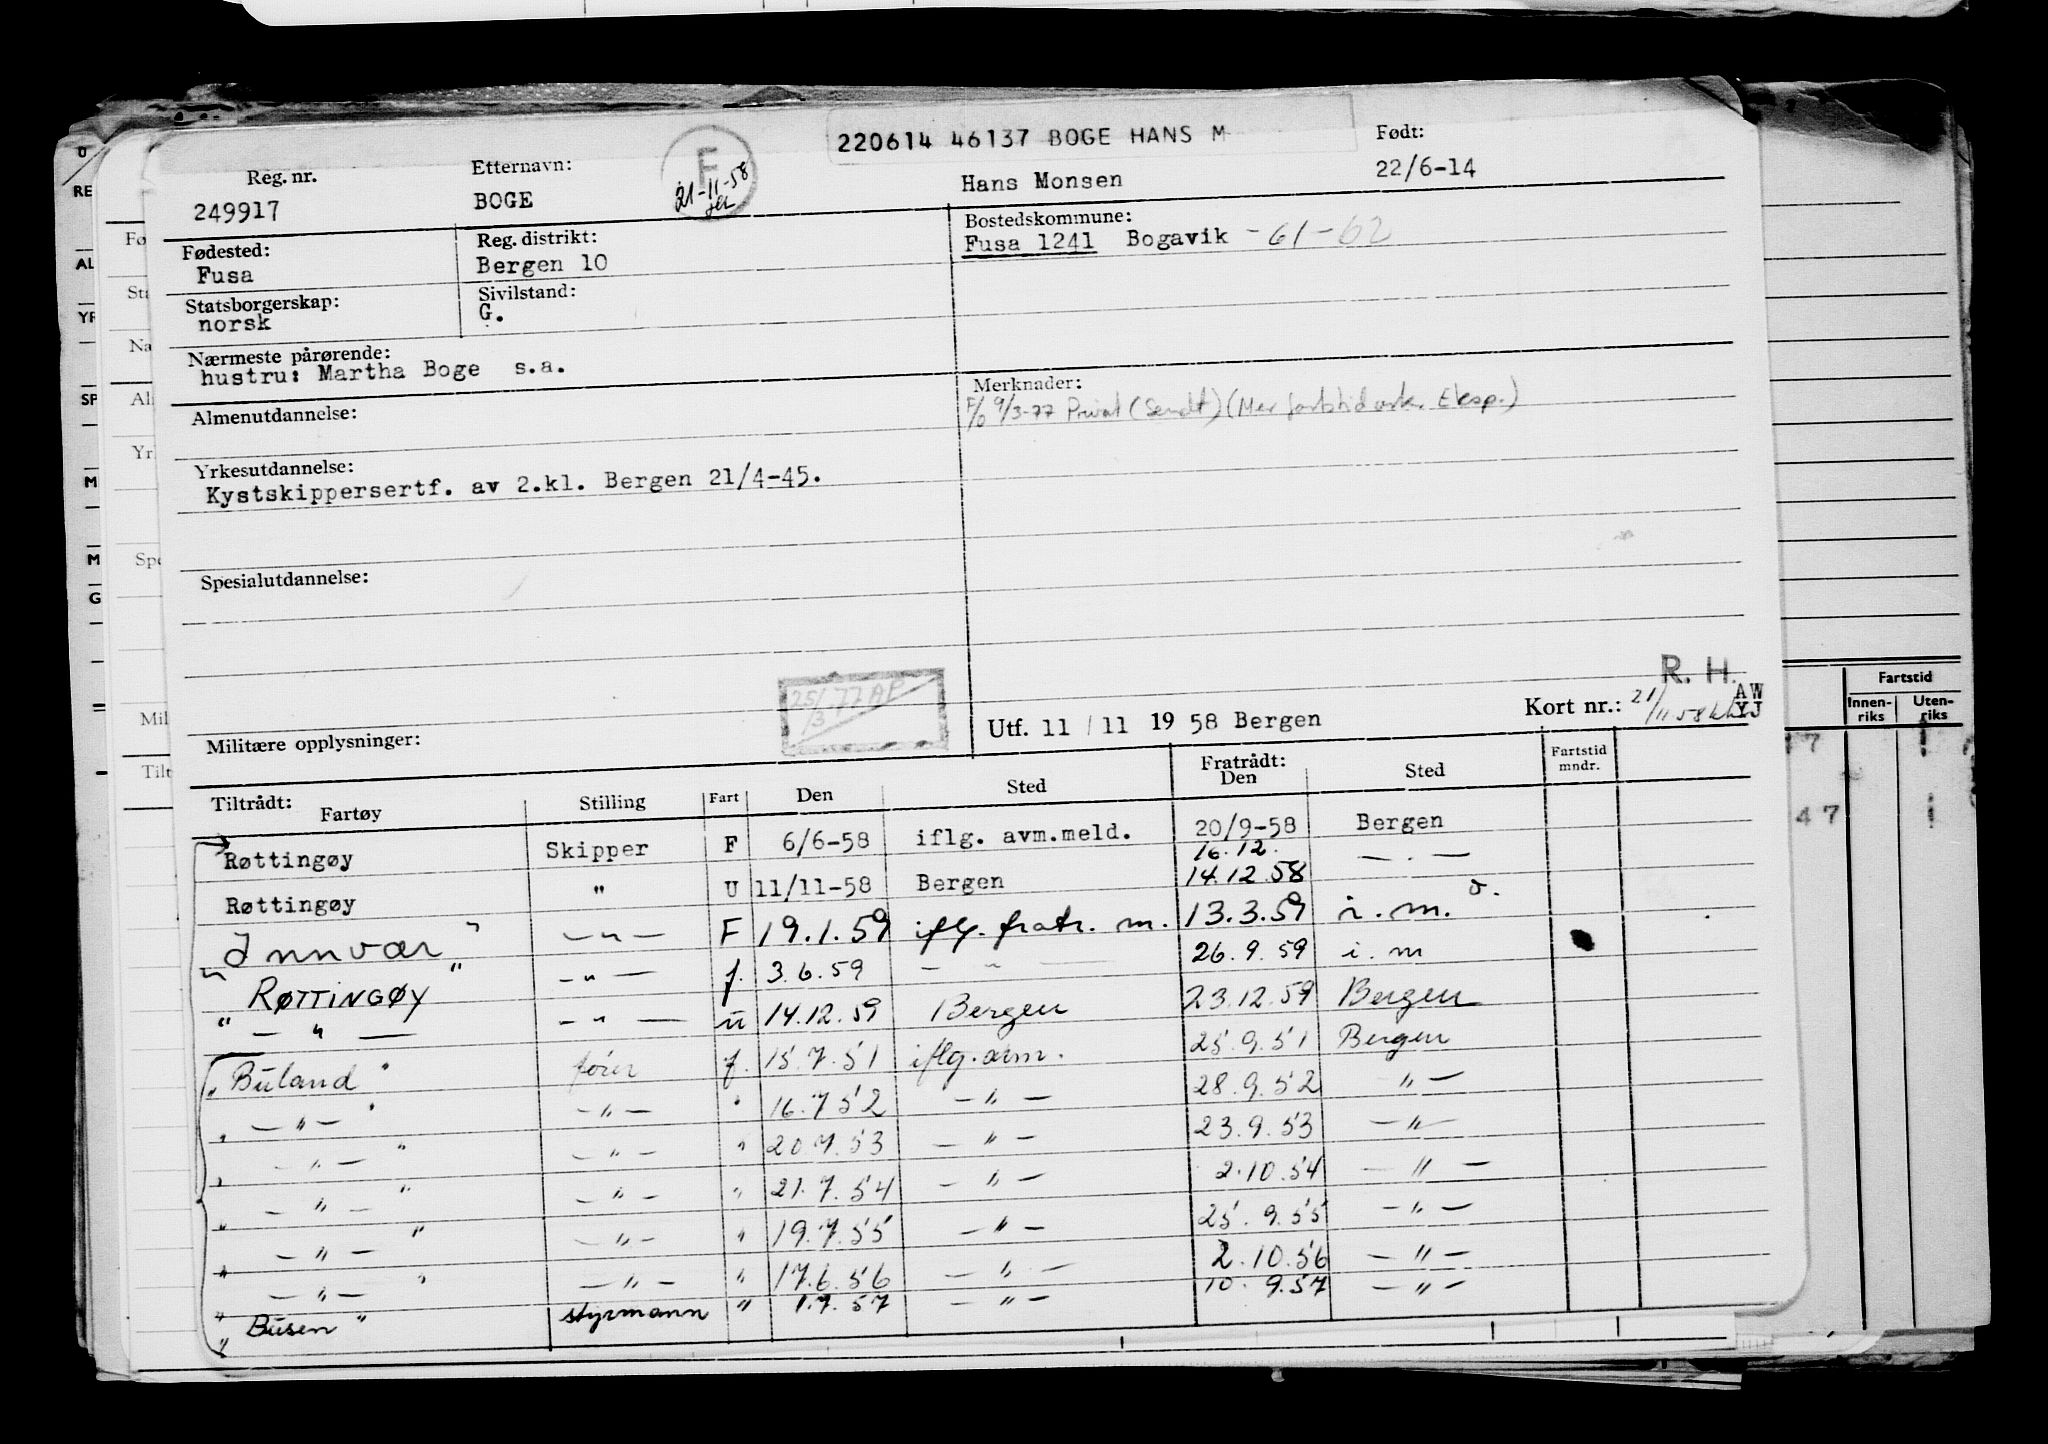 220614 46137 BOGE HANS M
Reg. nr. Etternavn: F Født:
249917 BOGE 21-11-58 Hans Monsen 22/6-14
Fødested: Reg. distrikt: Bostedskommune:
Fusa Bergen 10 Fusa 1241 Bogavik - 61-62
Statsborgerskap: Sivilstand:
norsk G.
Nærmeste pårørende: Merknader:
hustru: Martha Boge s.a. F/o 9/3-77 Privat (Sendt) (Mer fartstid Eksp.)
Almenutdannelse:
Yrkesutdannelse:
Kystskippersertf. av 2.kl. Bergen 21/4-45.
Spesialutdannelse:
R. H.
25/3 77 AF
Militære opplysninger: Utf. 11 / 11 19 58 Bergen Kort nr.: 21/11 58 AW YJ
Tiltrådt: Fratrådt:
Fartøy Stilling Fart Den Sted Den Sted Fartstid mndr.
Røttingøy Skipper F 6/6-58 iflg. avm.meld. 20/9-58 Bergen
16.12.
Røttingøy " U 11/11-58 Bergen 14.12.58 — . —
"Innvær" — " — F 19.1.59 iflg. fratr. m. 13.3.59 i. m.
" RØTTINGØY " — " — f. 3.6.59 — " — 26.9.59 i. m
" — " — — " — u 14.12.59 Bergen 23.12.59 Bergen
" Buland " fører f. 15.7.51 iflg. avm. 25.9.51 Bergen
" — " — " — " — " 16.7.52 — " — 28.9.52 — " —
" — " — " — " — " 20.7.53 — " — 23.9.53 — " —
" — " — " — " — " 21.7.54 — " — 2.10.54 — " —
" — " — " — " — " 19.7.55 — " — 25.9.55 — " —
" — " — " — " — " 17.6.56 — " — 2.10.56 — " —
" Busen " styrmann " 1.7.57 — " — 10.9.57 — " —
Fartstid
Innenriks Utenriks
47